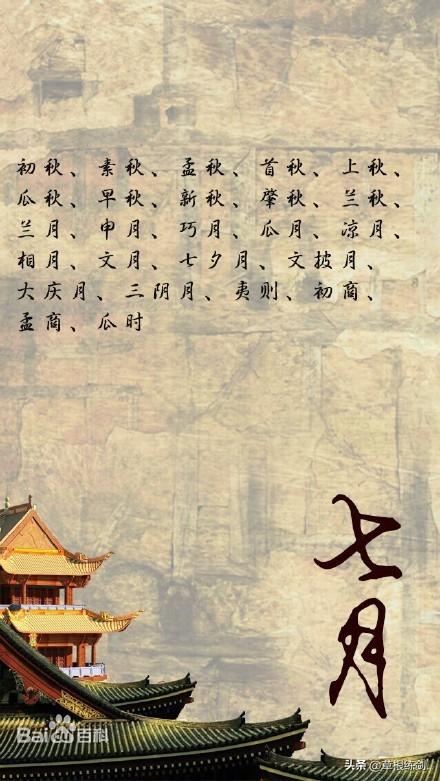 初秋、素秋、孟秋、首秋、上秋、
瓜秋、早秋、新秋、肇秋、兰秋、
兰月、申月、巧月、瓜月、凉月、
相月、文月、七夕月、文披月、
大庆月、三阴月、夷则、初商、
孟商、瓜时
七月
Bai百科
头条@草根练剑